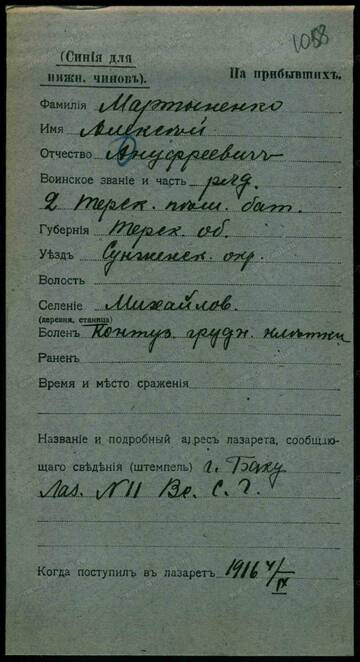 1058
(Синія для
нижн. чиновъ).
На прибывшихъ.
Фамилія Мартыненко
Имя Алексѣй
Отчество Ануфреевичъ
Воинское званіе и часть ряд.
2 Терск. пласт. бат.
Губернія Терск. об.
Уѣздъ Сунженск. окр.
Волость
Селеніе Михайлов.
(деревня, станица)
Боленъ Контуз. грудн. клѣтки
Раненъ
Время и мѣсто сраженія
Названіе и подробный адресъ лазарета, сообщаю-
щаго свѣдѣнія (штемпель) г. Баку
Лаз. N 11 Вс. С. Г.
Когда поступилъ въ лазаретъ 1916 4/IX